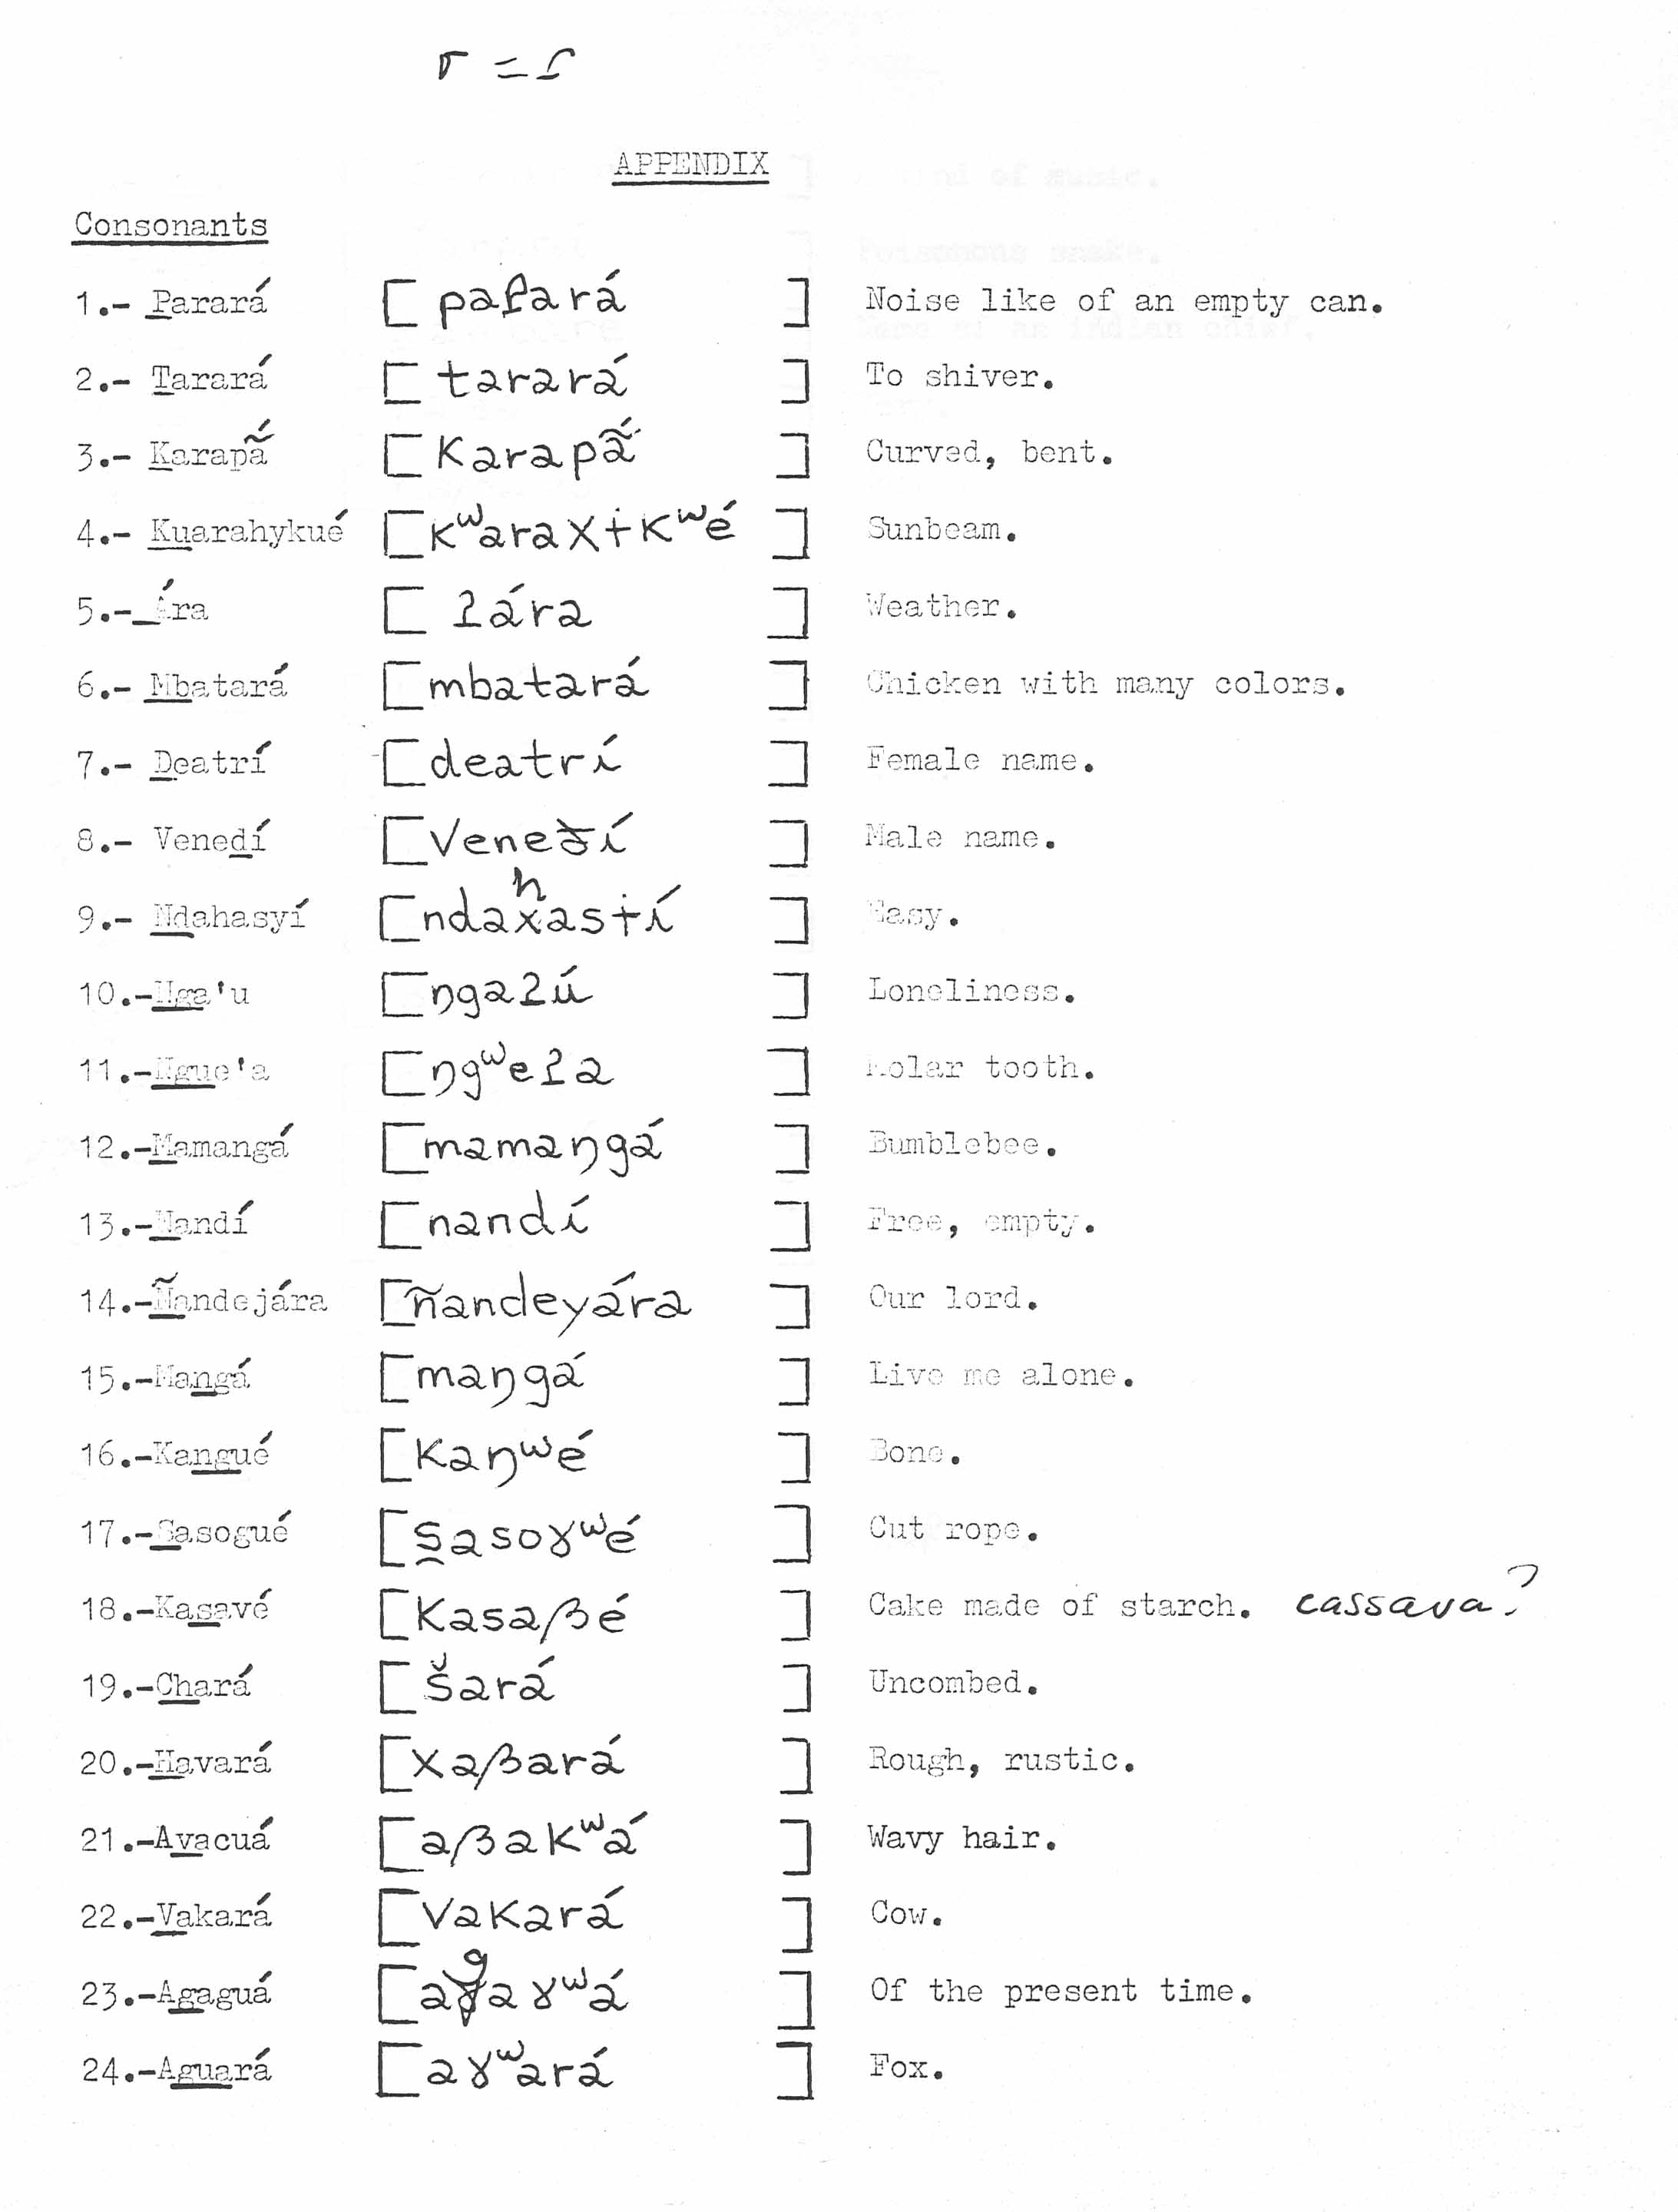 r = ɾ
APPENDIX
Consonants
1.- Parará [ paɾará ] Noise like of an empty can.
2.- Tarará [ tarará ] To shiver.
3.- Karapã́ [ Karapã́ ] Curved, bent.
4.- Kuarahykué [ kʷaraxɨkʷé ] Sunbeam.
5.- Ára [ ʔára ] Weather.
6.- Mbatará [ mbatará ] Chicken with many colors.
7.- Deatrí [ deatrí ] Female name.
8.- Venedí [ Veneđí ] Male name.
h
9.- Ndahasyí [ ndaxasɨí ] Easy.
10.-Nga'u [ ŋgaʔú ] Loneliness.
11.-Ngue'a [ ŋgʷeʔa ] Molar tooth.
12.-Mamangá [ mamaŋgá ] Bumblebee.
13.-Nandí [ nandí ] Free, empty.
14.-Ñandejára [ ñandeyára ] Our lord.
15.-Mangá [ maŋgá ] Live me alone.
16.-Kangué [ Kaŋʷé ] Bone.
17.-Sasogué [ s̪asoɣʷé ] Cut rope.
18.-Kasavé [ Kasaβé ] Cake made of starch. cassava?
19.-Chará [ šará ] Uncombed.
20.-Havará [ xaβará ] Rough, rustic.
21.-Avacuá [ aβakʷá ] Wavy hair.
22.-Vakará [ vaKará ] Cow.
g
23.-Agaguá [ aɣaɣʷá ] Of the present time.
24.-Aguará [ aɣʷará ] Fox.